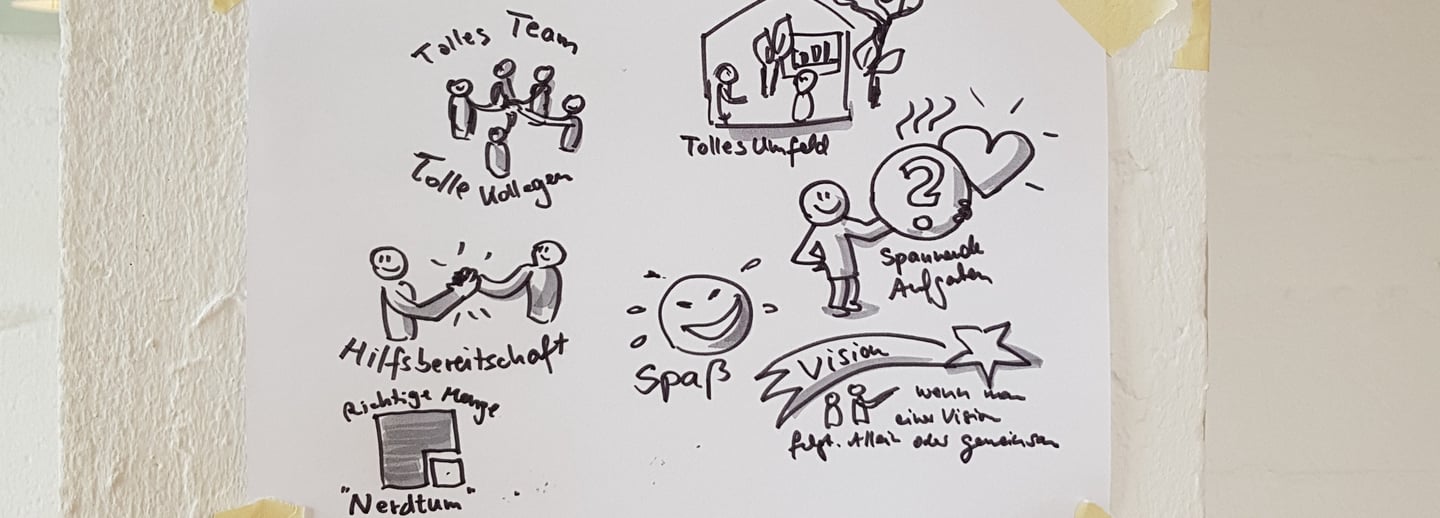 Tolles Team
Tolle Kollegen
Tolles Umfeld
?
Spannende
Aufgaben
Hilfsbereitschaft
Spaß
Vision
wenn man
einer Vision
folgt. Allein oder gemeinsam
Richtige Menge
"Nerdtum"